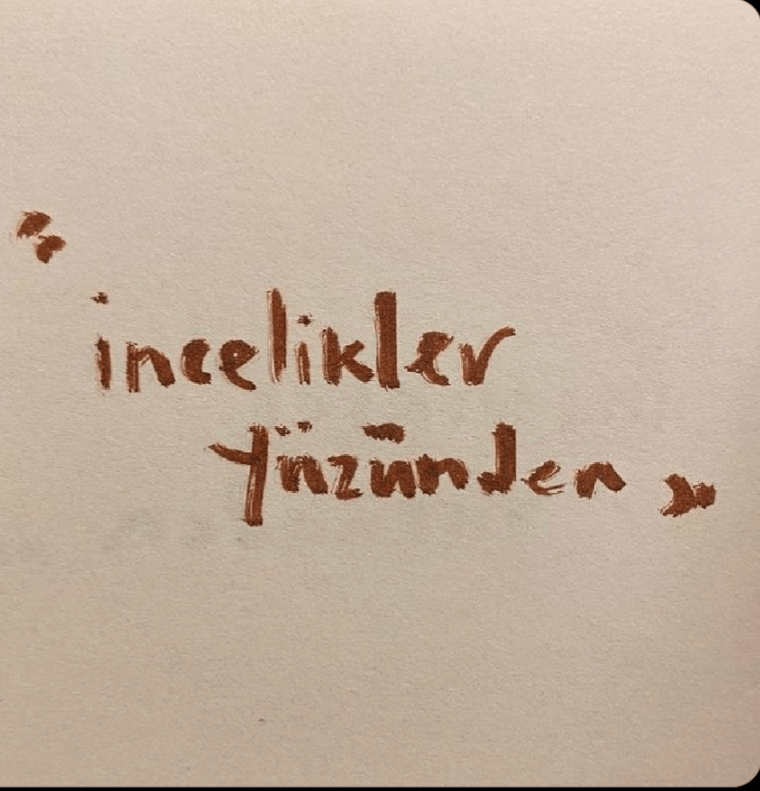 “
incelikler
yüzünden”